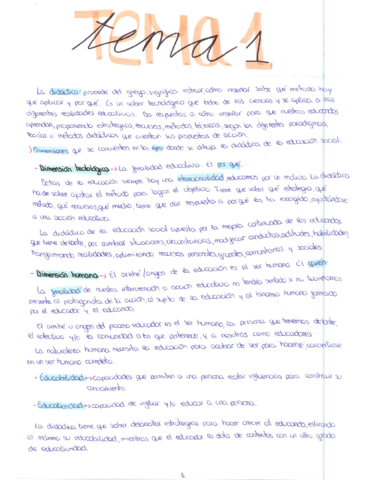 tema 1
La didáctica procede del griego, significa instruir, cómo enseñar. Sabe qué método hay
que aplicar y por qué. Es un saber tecnológico que bebe de las ciencias y se aplica a las
diferentes realidades educativas. Da respuestas a cómo enseñar para que nuestros educandos
aprendan, proponiendo estrategias, recursos, métodos, técnicas, según los diferentes paradigmas,
teorías o métodos didácticos que orienten sus propuestas de acción.
Dimensiones que se convierten en los ejes donde se dibuja la didáctica de la educación social.
- Dimensión teleológica → La finalidad educativa. El por qué.
Detrás de la educación siempre hay una intencionalidad, educamos por un motivo. La didáctica
ha de saber ajustar el método para lograr el objetivo. Tiene que saber qué estrategia, qué
método, qué recursos, qué medio, tiene que dar respuesta a por qué los ha escogido, ajustándose
a una acción educativa.
La didáctica de la educación social apuesta por la mejora continuada de los educandos
que tiene delante, por cambiar situaciones, circunstancias, modificar conductas, actitudes, habilidades
transformando realidades, optimizando recursos personales, grupales, comunitarios y sociales.
- Dimensión humana → El centro/origen de la educación es el ser humano. El quién
La finalidad de nuestra intervención o acción educativa no tendría sentido si no tuviéramos
presente al protagonista de la acción, al sujeto de la educación y al binomio humano formado
por el educador y el educando.
El centro u origen del proceso educador es el ser humano, la persona que tenemos delante,
el colectivo y/o la comunidad a los que pertenece, y a nosotros como educadores.
La naturaleza humana necesita la educación para acabar de ser, para hacerse, convertirse
en un ser humano completo.
- Educabilidad → capacidades que permiten a una persona recibir influencias para construir su
conocimiento
- Educatividad → capacidad de influir y/o educar a una persona.
La didáctica tiene que saber desarrollar estrategias para hacer crecer al educando, estirando
al máximo su educabilidad, mientras que el educador lo dota de contextos con un alto grado
de educatividad.
1